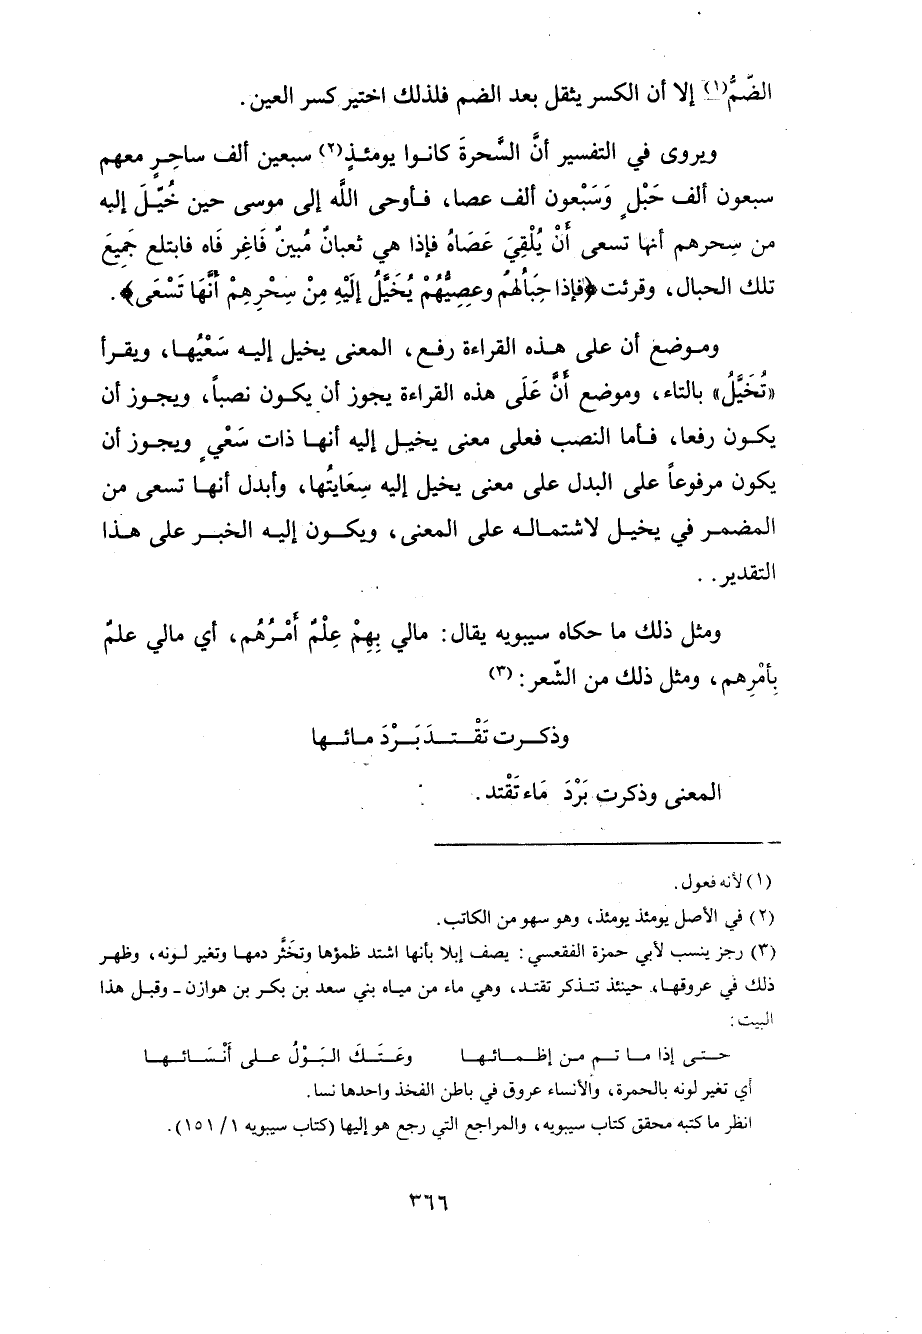 الضّمُّ(١) إلا أن الكسر يثقل بعد الضم فلذلك اختير كسر العين.
ويروى في التفسير أنَّ السَّحرةَ كانوا يومئذٍ(٢) سبعين ألف ساحِرٍ معهم
سبعون ألف حَبْلٍ وَسَبْعون ألف عصا، فأوحى اللَّه إلى موسى حين خُيِّلَ إليه
من سِحرهم أنها تسعى أَنْ يُلْقِيَ عَصَاهُ فإذا هي ثعبانٌ مُبينٌ فَاغِر فَاه فابتلع جَمِيعَ
تلك الحبال، وقرئت ﴿فإذا حِبَالُهُم وعِصِيُّهُمْ يُخَيَّلُ إِلَيْهِ مِنْ سِحْرِهِمْ أَنَّهَا تَسْعَى﴾.
وموضع أن على هذه القراءة رفع، المعنى يخيل إليه سَعْيُها، ويقرأ
«تُخَيَّلُ» بالتاء، وموضع أَنَّ عَلَى هذه القراءة يجوز أن يكون نصباً، ويجوز أن
يكون رفعا، فأما النصب فعلى معنى يخيل إليه أنها ذات سَعْيٍ ويجوز أن
يكون مرفوعاً على البدل على معنى يخيل إليه سِعَايتُها، وأبدل أنها تسعى من
المضمر في يخيل لاشتماله على المعنى، ويكون إليه الخبر على هذا
التقدير..
ومثل ذلك ما حكاه سيبويه يقال: مالي بِهِمْ عِلْمٌ أَمْرُهُم، أي مالي علمٌ
بِأمْرِهم، ومثل ذلك من الشّعر: (٣)
وذكرت تَقْتدَ بَرْدَ مائها
المعنى وذكرت بَرْدَ مَاء تَقْتد.
(١) لأنه فعول.
(٢) في الأصل يومئذ يومئذ، وهو سهو من الكاتب.
(٣) رجز ينسب لأبي حمزة الفقعسي: يصف إبلا بأنها اشتد ظمؤها وتخَثَّر دمها وتغير لونه، وظهر
ذلك في عروقها، حينئذ تتذكر تقتد، وهي ماء من مياه بني سعد بن بكر بن هوازن - وقبل هذا
البيت:
حتى إذا ما تم من إظمائها وعَتَكَ البَوْلُ على أنْسَائها
أي تغير لونه بالحمرة، والأنساء عروق في باطن الفخذ واحدها نسا.
انظر ما كتبه محقق كتاب سيبويه، والمراجع التي رجع هو إليها (كتاب سيبويه ١/ ١٥١).
٣٦٦